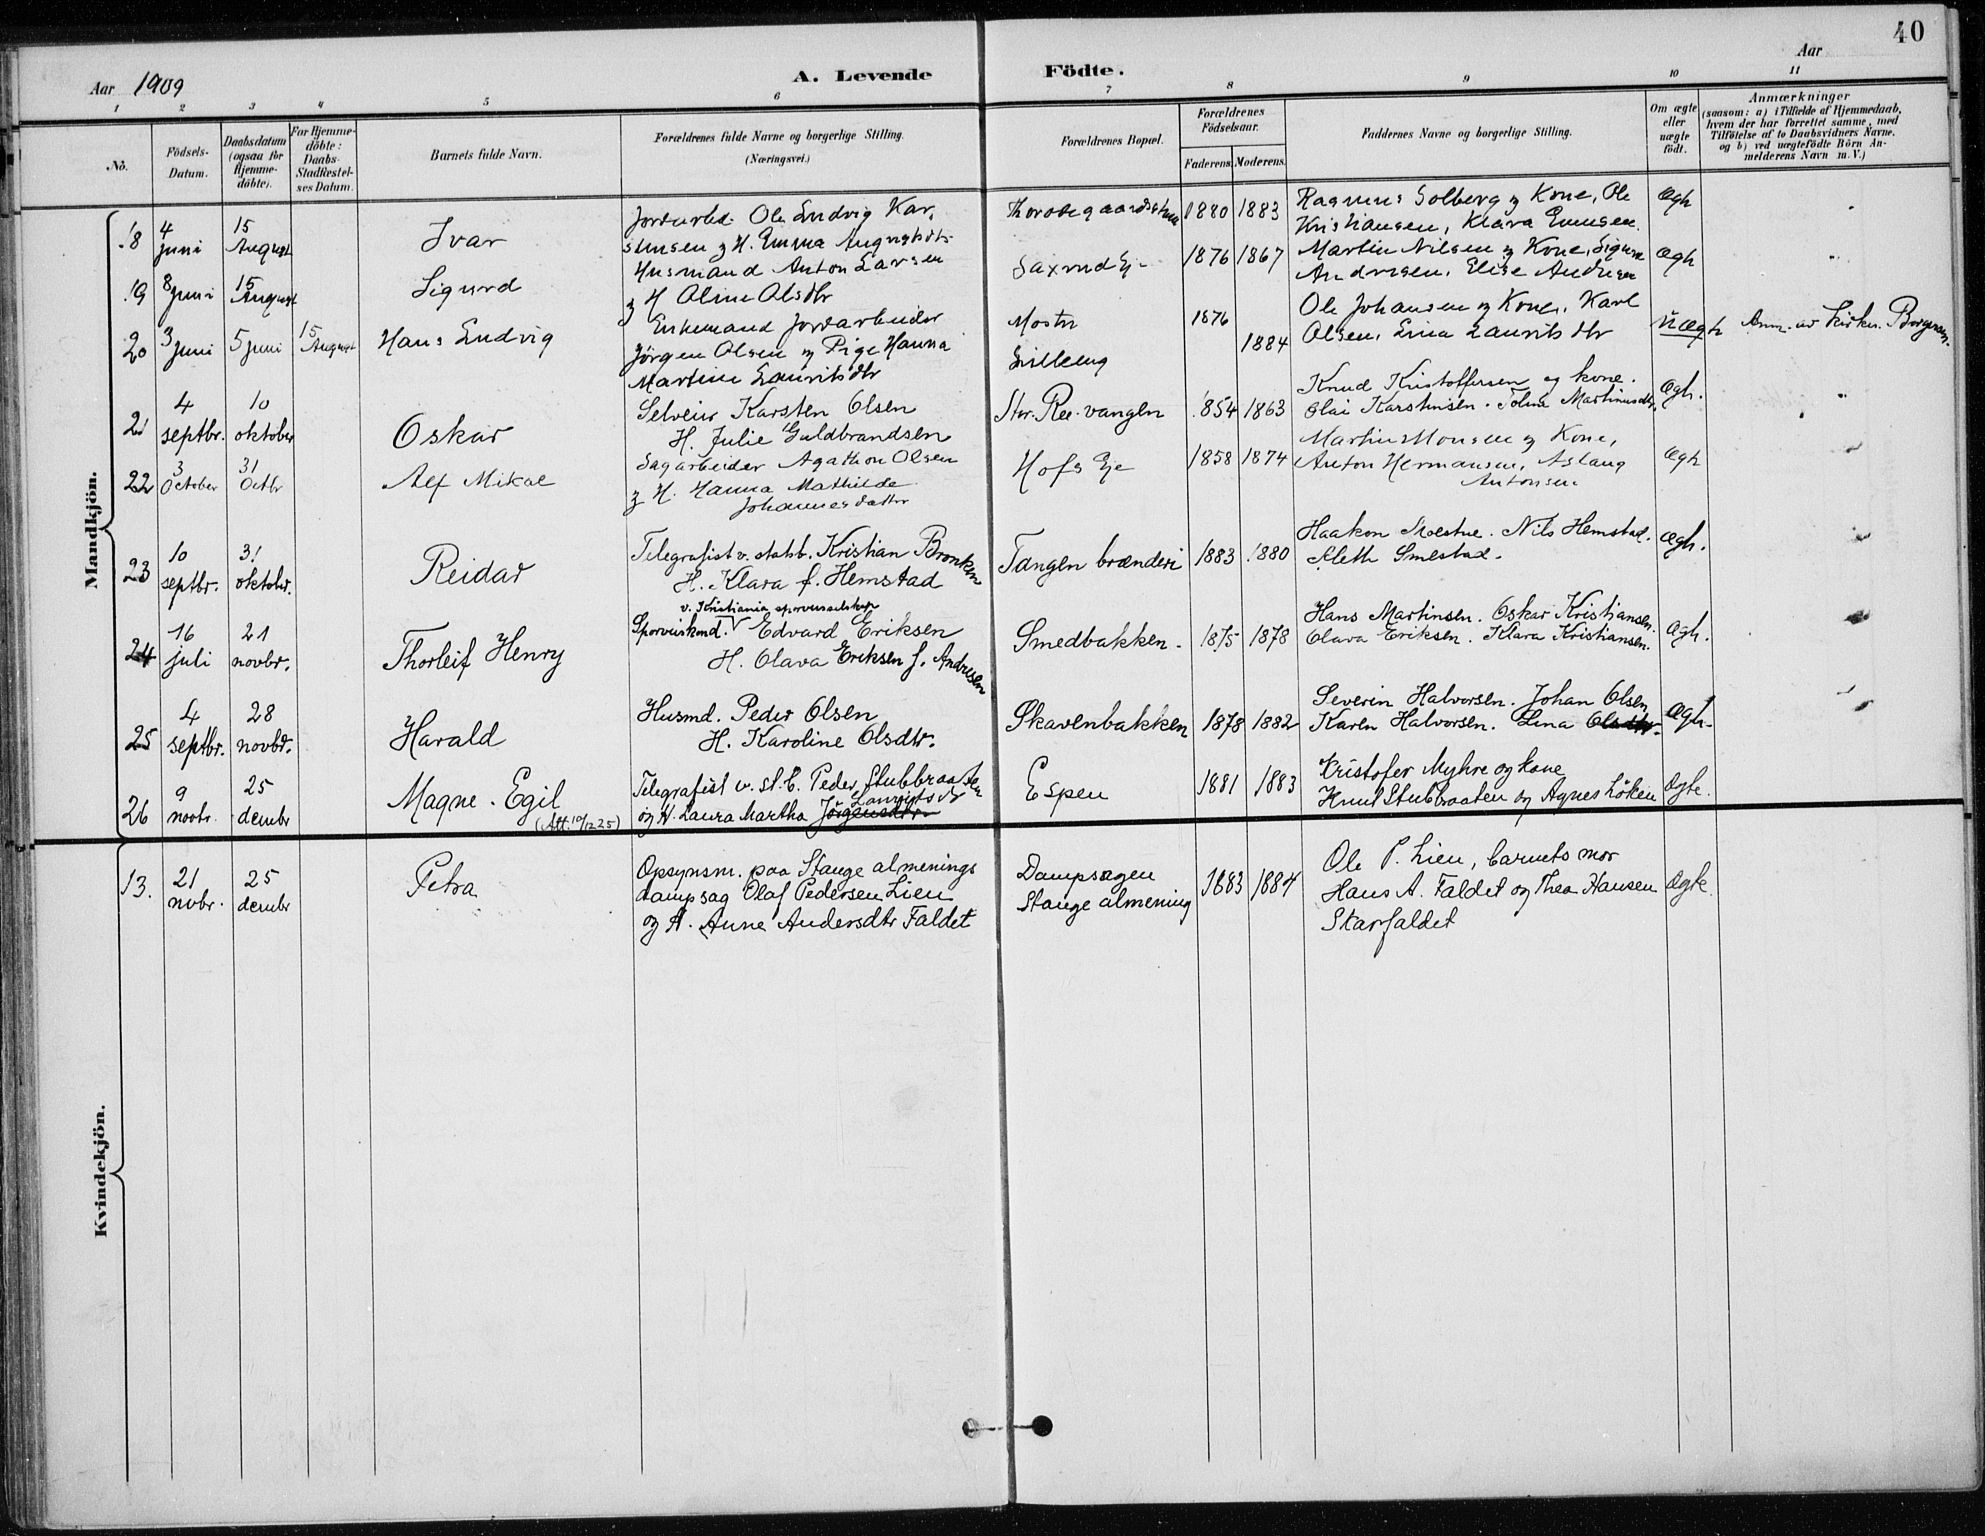 40
Aar 1909
A. Levende Födte.
Aar
1 2 3 4 5 6 7 8 9 10 11
No.
Födsels-Datum.
Daabsdatum (ogsaa för Hjemme-döbte).
For Hjemme-döbte: Daabs-Stadfæstel-ses Datum.
Barnets fulde Navn.
Forældrenes fulde Navne og borgerlige Stilling. (Næringsvei.)
Forældrenes Bopæl.
Forældrenes Födselsaar.
Faderens. Moderens.
Faddernes Navne og borgerlige Stilling.
Om ægte eller uægte födt.
Anmærkninger
(saasom: a) i Tilfælde af Hjemmedaab,
hvem der har forrettet samme, med
Tilföielse af to Daabsvidners Navne.
og b) ved uægtefödte Börn An-
melderens Navn m. V.)
Mandkjön.
18 4 juni 15 August Ivar
Jordarbd. Ole Ludvig Kar-
stensen og H. Emma Augustsdtr
1880 1883
Ragnus Solberg og Kone, Ole
Kristiansen, Klara Evensen.
Ægte
19 8 juni 15 August Sigurd
Husmand Anton Larsen
og H Oline Olsdtr
Saxrud Ej- 1876 1867
Martin Nilsen og Kone, Signe
Andresen, Elise Andresen
Ægte
20 3 juni 5 juni 15 August Hans Ludvig
Enkemand Jordarbeider
Jörgen Olsen og Pige Hanna
Martine Lauritsdtr
Moster 1876
1884
Ole Johansen og Kone, Karl
Olsen, Lina Lauritsdtr
Uægte
Anm. av Kirkes. Borgersen.
21 4 septbr. 10 oktober Oskar
Selveier Karsten Olsen
H. Julie Guldbrandsen
Str. Ree-vangen 1854 1863
Knud Kristoffersen og kone.
Olai Karstensen. Toline Martinusdtr.
Ægte.
22 3 October 31 Octbr Alf Mikal
Sagarbeider Agathon Olsen
og H. Hanna Mathilde
Johannesdatter
Hofs Eje 1858 1874
Martin Monsen og Kone,
Anton Hermansen, Aslaug
Antonsen
Ægte
23 10 septbr. 31 oktober. Reidar
Telegrafist v. statsb. Kristian Bronken
H. Klara f. Hemstad
Tangen brænderi 1883 1880
Haakon Moestue. Nils Hemstad.
Aleth Smestad.
Ægte.
24 16 juli 21 novbr. Thorleif Henry
v. Kristiania sporveisselskap
Sporveiskond. Edvard Eriksen
H. Olava Eriksen f. Andresen
Smedbakken. 1875 1878
Hans Martinsen. Oskar Kristiansen.
Olava Eriksen. Klara Kristiansen.
Ægte.
25 4 septbr. 28 novbr. Harald
Husmd. Peder Olsen
H. Karoline Olsdtr.
Skavenbakken 1878 1882
Severin Halvorsen. Johan Olsen
Karen Halvorsen. Lina Olsdtr.
Ægte.
26 9 novbr. 25 decmbr Magne Egil
(Att. 10/12 25)
Telegrafist v. St. B. Peder Stubbraaten
og H. Laura Martha Jörgensdtr Lauritsdtr
Espen 1881 1883
Kristofer Myhre og kone
Knut Stubbraaten og Agnes Löken
Ægte.
Kvindekjön.
13. 21 novbr. 25 decmbr Petra
Opsynsm. paa Stange almenings
dampsag Olaf Pedersen Lien
og H. Anne Andersdtr Faldet
Dampsagen
Stange almening
1883 1884
Ole P. Lien, barnets mor
Hans A. Faldet og Thea Hansen
Skarfaldet
Ægte.